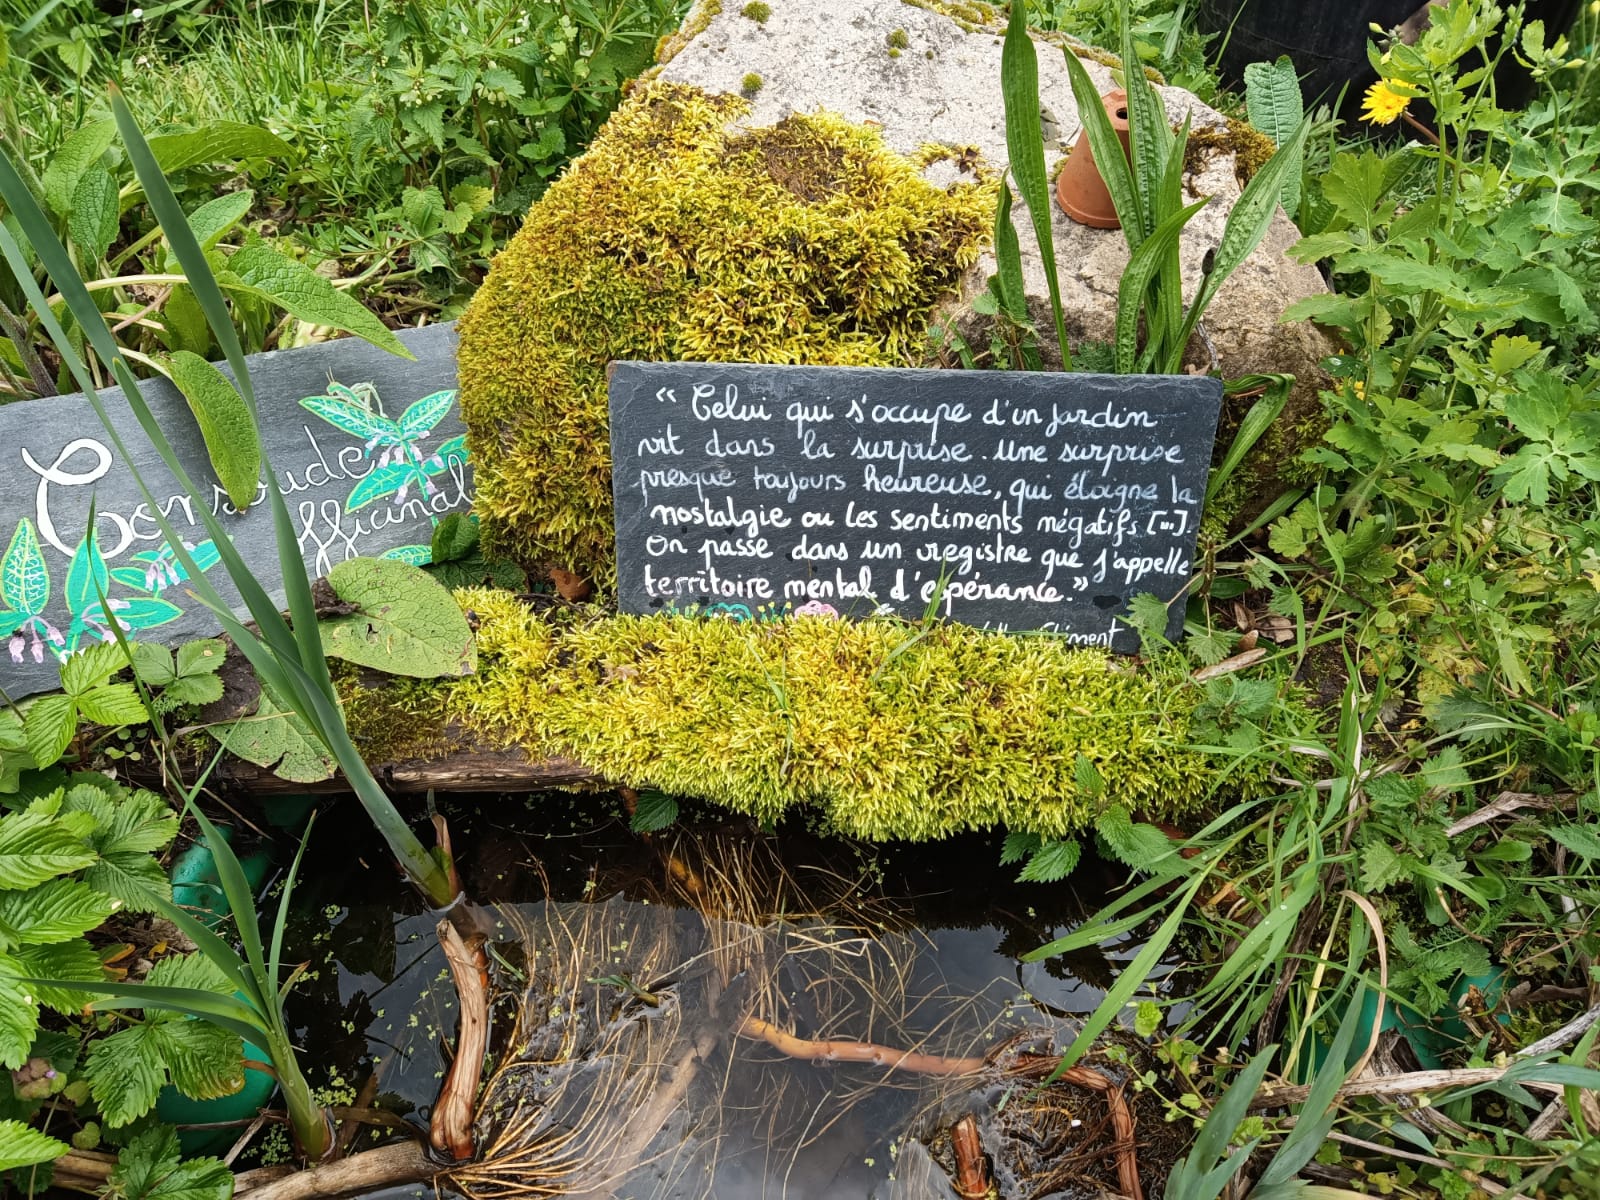 Consoude
officinale
“ Celui qui s'occupe d'un jardin
vit dans la surprise. Une surprise
presque toujours heureuse, qui éloigne la
nostalgie ou les sentiments négatifs [...].
On passe dans un registre que j'appelle
territoire mental d'espérance.”
Clément